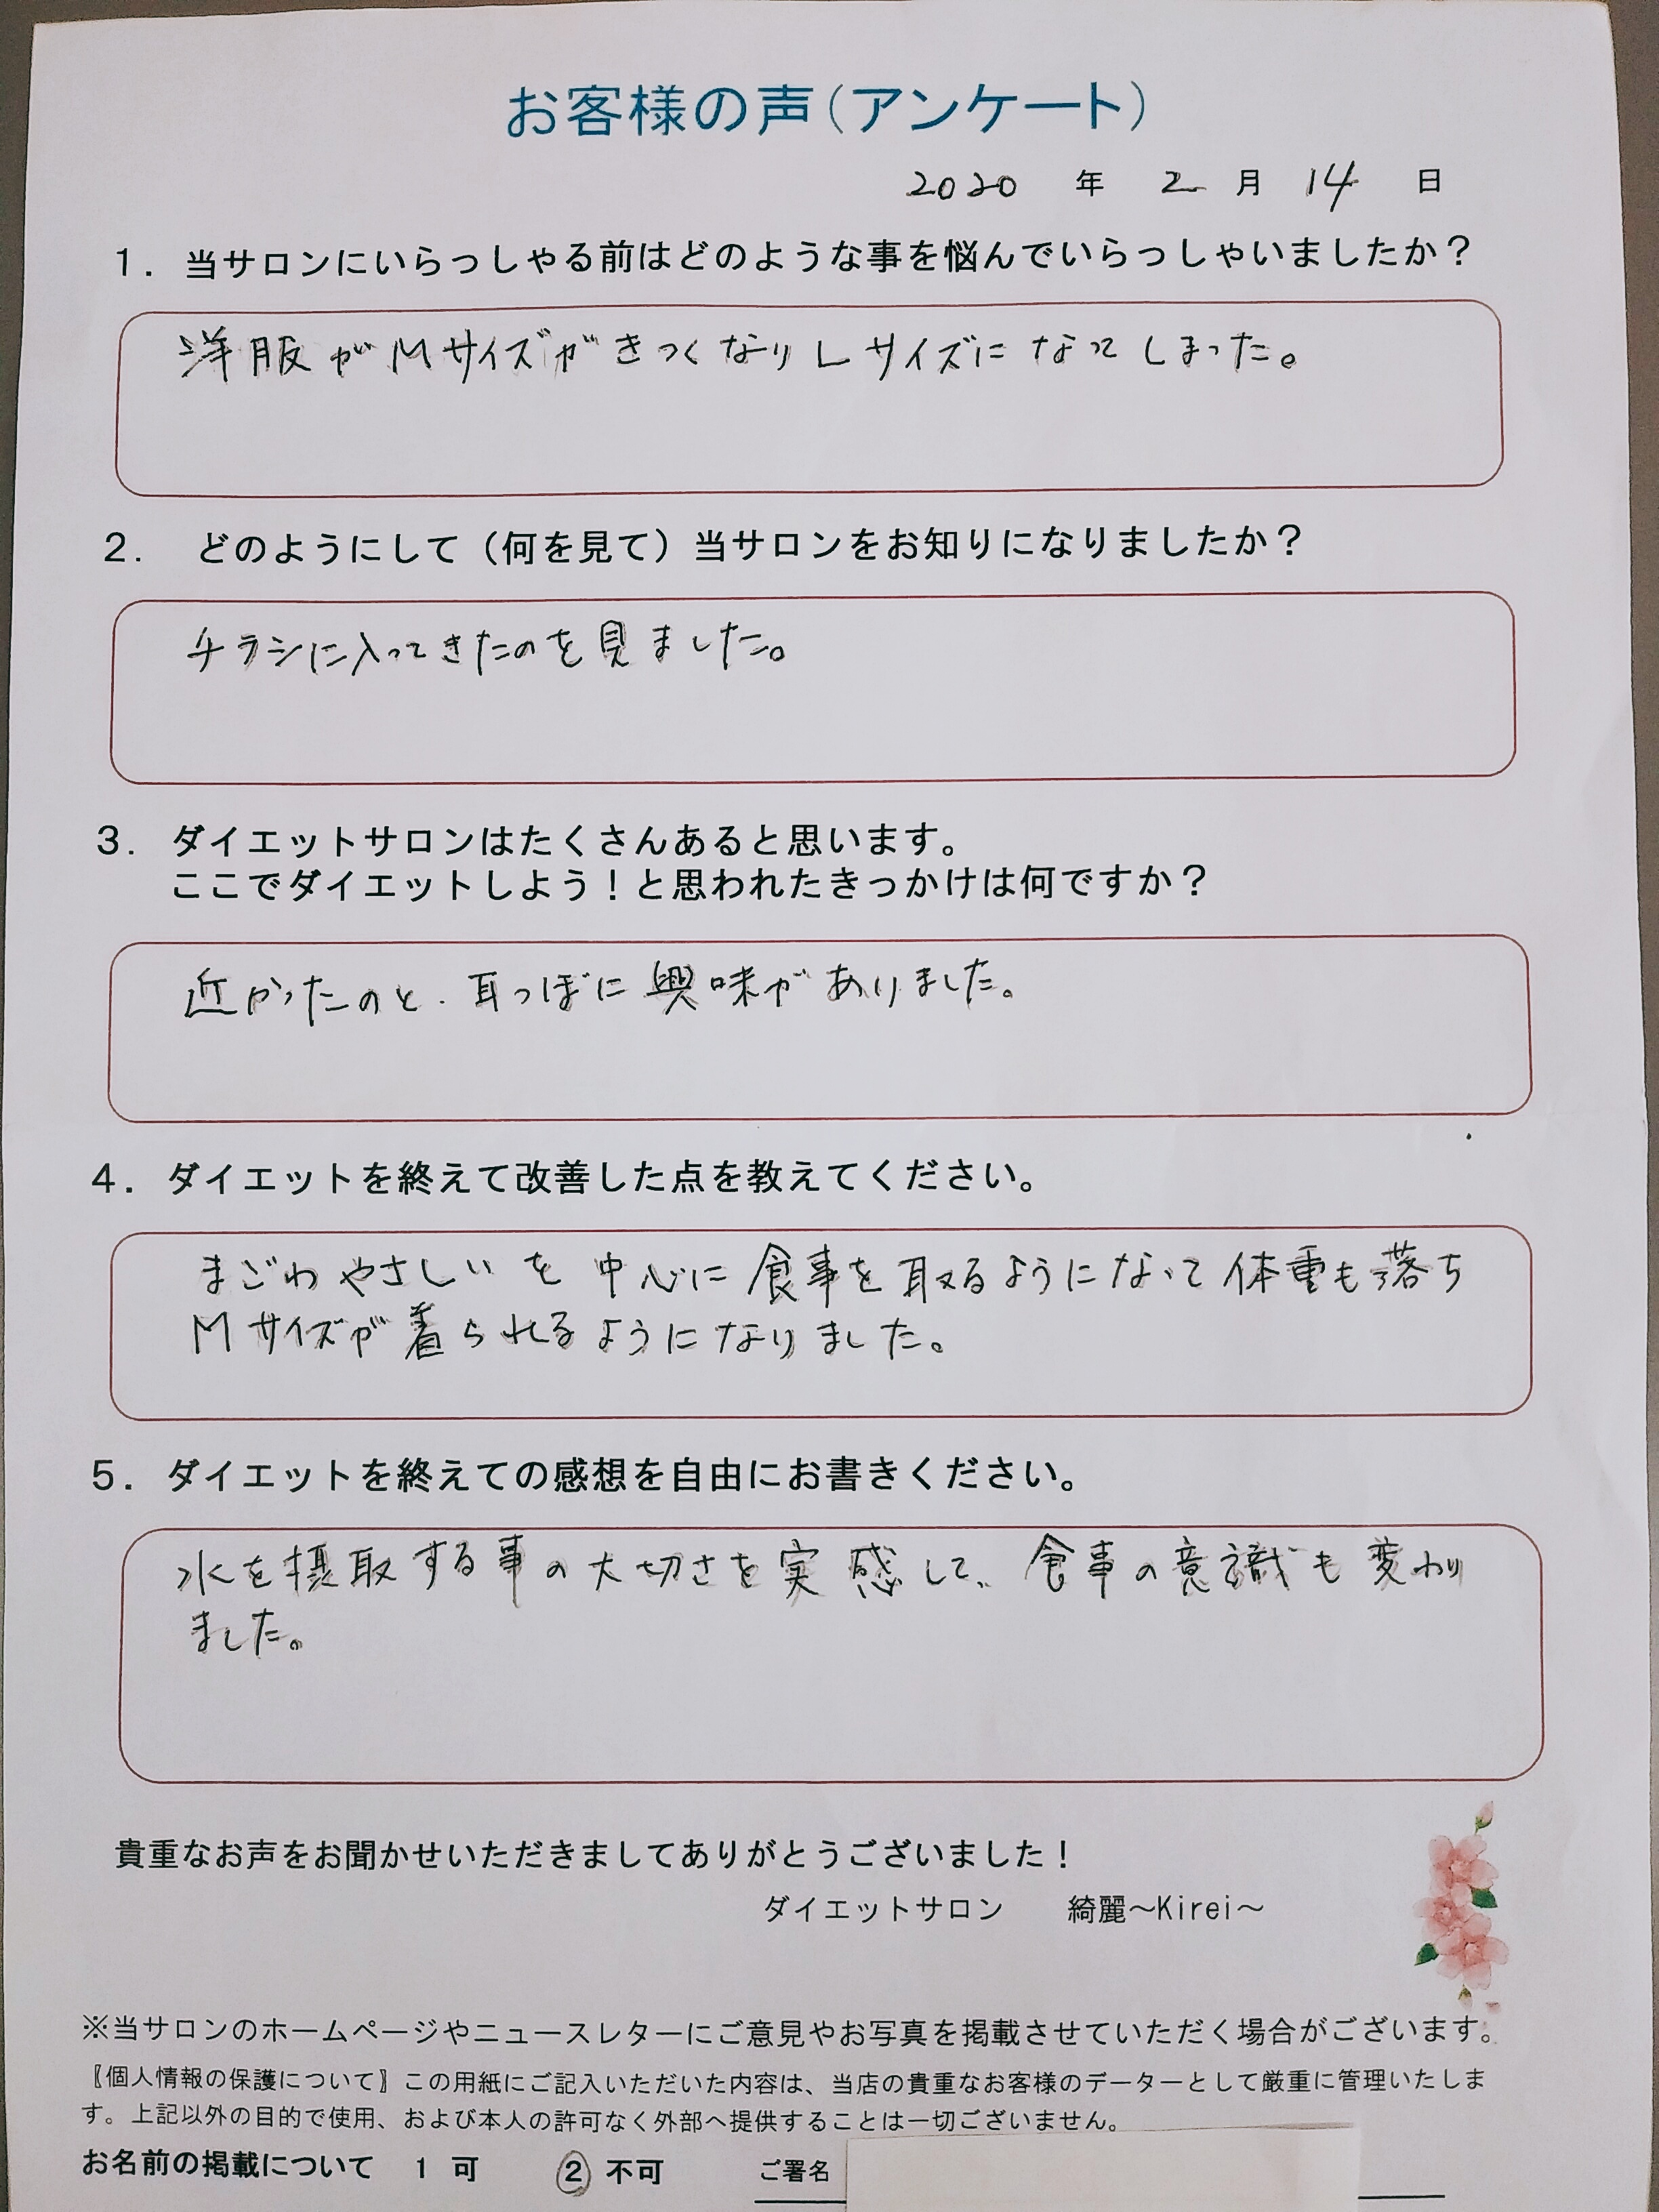 お客様の声(アンケート)
2020 年 2 月 14 日
1. 当サロンにいらっしゃる前はどのような事を悩んでいらっしゃいましたか？
洋服がMサイズがきつくなりLサイズになってしまった。
2. どのようにして（何を見て）当サロンをお知りになりましたか？
チラシに入ってきたのを見ました。
3. ダイエットサロンはたくさんあると思います。
ここでダイエットしよう！と思われたきっかけは何ですか？
近かったのと、耳つぼに興味がありました。
4. ダイエットを終えて改善した点を教えてください。
まごわやさしいを中心に食事を取るようになって体重も落ち
Mサイズが着られるようになりました。
5. ダイエットを終えての感想を自由にお書きください。
水を摂取する事の大切さを実感して、食事の意識も変わり
ました。
貴重なお声をお聞かせいただきましてありがとうございました！
ダイエットサロン 綺麗～Kirei～
※当サロンのホームページやニュースレターにご意見やお写真を掲載させていただく場合がございます。
〖個人情報の保護について〗この用紙にご記入いただいた内容は、当店の貴重なお客様のデーターとして厳重に管理いたしま
す。上記以外の目的で使用、および本人の許可なく外部へ提供することは一切ございません。
お名前の掲載について 1 可 ② 不可 ご署名